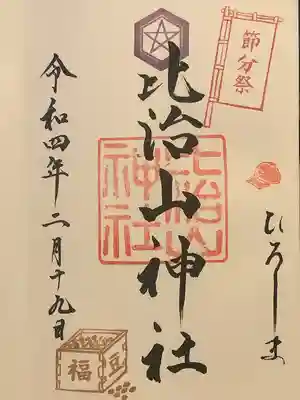 節分祭
ひろしま
比治山神社
比治山
神社
令和四年二月十九日
福
豆